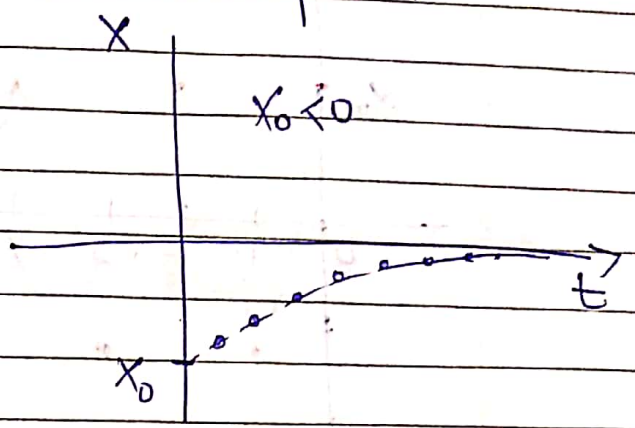 X
X₀ < 0
t
X₀